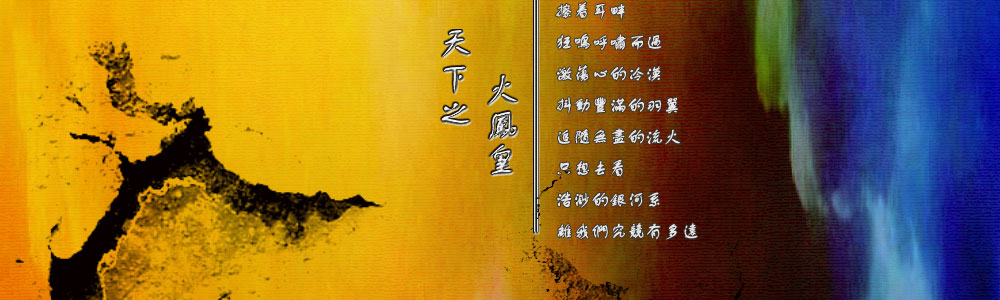 天下之
火鳳皇
擦着耳畔
狂鳴呼嘯而過
激蕩心的冷漠
抖動豐滿的羽翼
追隨無盡的流火
只想去看
浩渺的銀河系
離我們究竟有多遠